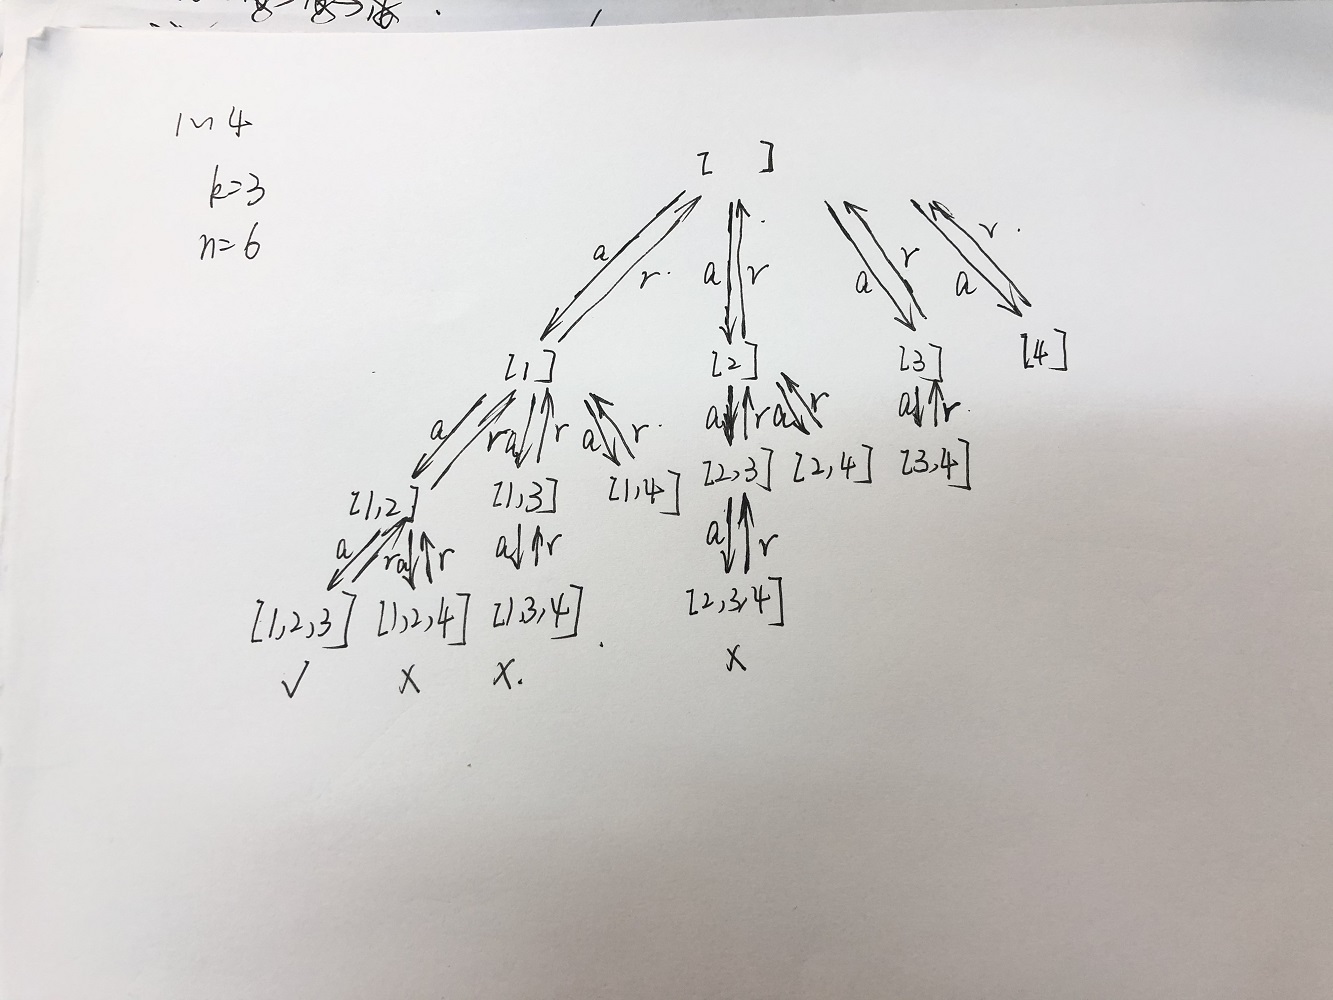 1~4
k=3
n=6
[ ]
a r. a r a r a r.
[1] [2] [3] [4]
a r a r a r. a r a r a r.
[1,2] [1,3] [1,4] [2,3] [2,4] [3,4]
a r a r a r a r
[1,2,3] [1,2,4] [1,3,4] [2,3,4]
✓ X X. X